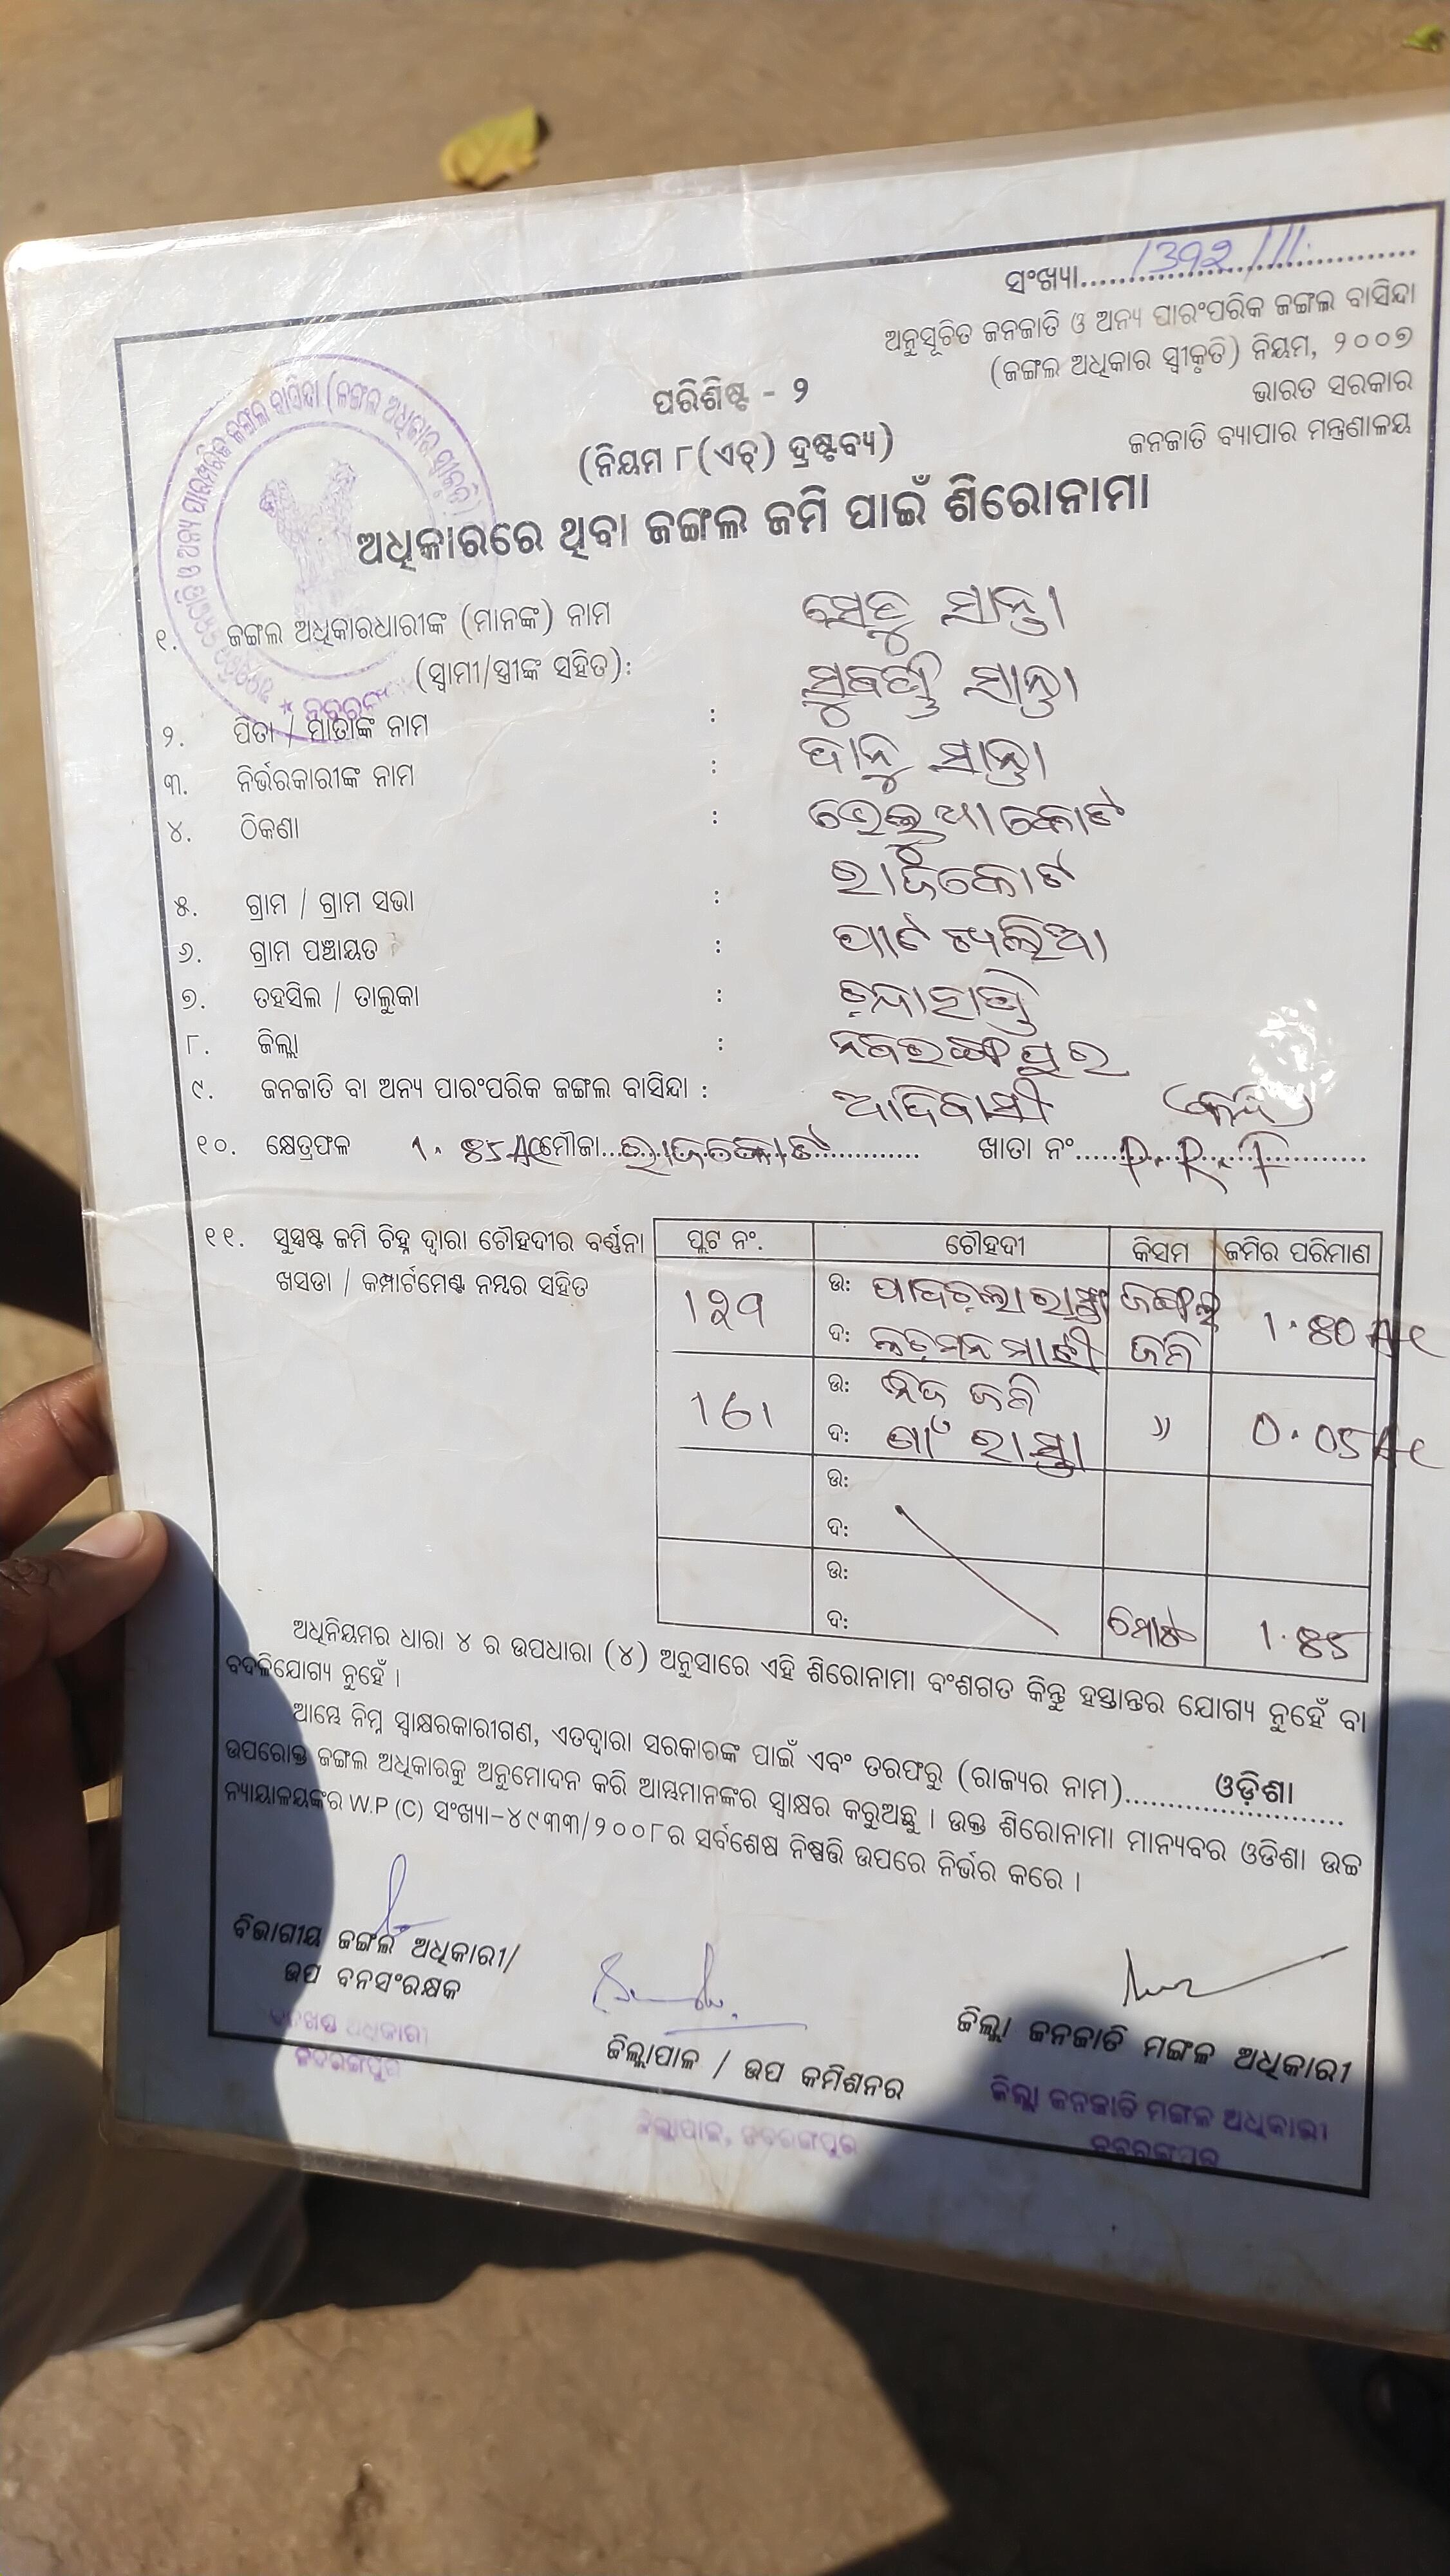 ସଂଖ୍ୟା..........
ଅନୁସୂଚିତ ଜନଜାତି ଓ ଅନ୍ୟ ପାରଂପରିକ ଜଙ୍ଗଲ ବାସିନ୍ଦା
(ଜଙ୍ଗଲ ଅଧିକାର ସ୍ୱୀକୃତି) ନିୟମ, ୨୦୦୭
ଭାରତ ସରକାର
ଜନଜାତି ବ୍ୟାପାର ମନ୍ତ୍ରଣାଳୟ
ପରିଶିଷ୍ଟ - ୨
(ନିୟମ ୮(ଏଚ୍) ଦ୍ରଷ୍ଟବ୍ୟ)
ଅଧିକାରରେ ଥିବା ଜଙ୍ଗଲ ଜମି ପାଇଁ ଶିରୋନାମା
୧. ଜଙ୍ଗଲ ଅଧିକାରଧାରୀଙ୍କ (ମାନଙ୍କ) ନାମ ସାନ୍ତା
(ସ୍ୱାମୀ/ସ୍ତ୍ରୀଙ୍କ ସହିତ): ସାନ୍ତା
୨. ପିତା / ମାତାଙ୍କ ନାମ : ସାନ୍ତା
୩. ନିର୍ଭରକାରୀଙ୍କ ନାମ :
୪. ଠିକଣା : ରାଜକୋଟ
୫. ଗ୍ରାମ / ଗ୍ରାମ ସଭା :
୬. ଗ୍ରାମ ପଞ୍ଚାୟତ :
୭. ତହସିଲ / ତାଲୁକା :
୮. ଜିଲ୍ଲା : ନବରଙ୍ଗପୁର
୯. ଜନଜାତି ବା ଅନ୍ୟ ପାରଂପରିକ ଜଙ୍ଗଲ ବାସିନ୍ଦା : ଆଦିବାସୀ
୧୦. କ୍ଷେତ୍ରଫଳ 1.85 Ac ମୌଜା.. ରାଜକୋଟ .......... ଖାତା ନଂ..... P.R.F
୧୧. ସୁସ୍ପଷ୍ଟ ଜମି ଚିହ୍ନ ଦ୍ୱାରା ଚୌହଦୀର ବର୍ଣ୍ଣନା
ଖସଡା / କମ୍ପାର୍ଟମେଣ୍ଟ ନମ୍ବର ସହିତ
ପ୍ଲଟ ନଂ. ଚୌହଦୀ କିସମ ଜମିର ପରିମାଣ
ଉ: ଜଙ୍ଗଲ 1.80 Ac
ଦ: ଜମି
161 ଉ: ନିଜ ଜମି " 0.05 Ac
ଦ: ଗାଁ ରାସ୍ତା
ଉ:
ଦ:
ଉ:
ଦ: ମୋଟ 1.85
ଅଧିନିୟମର ଧାରା ୪ ର ଉପଧାରା (୪) ଅନୁସାରେ ଏହି ଶିରୋନାମା ବଂଶଗତ କିନ୍ତୁ ହସ୍ତାନ୍ତର ଯୋଗ୍ୟ ନୁହେଁ ବା
ବଦଳିଯୋଗ୍ୟ ନୁହେଁ ।
ଆମ୍ଭେ ନିମ୍ନ ସ୍ୱାକ୍ଷରକାରୀଗଣ, ଏତଦ୍ୱାରା ସରକାରଙ୍କ ପାଇଁ ଏବଂ ତରଫରୁ (ରାଜ୍ୟର ନାମ).......... ଓଡ଼ିଶା
ଉପରୋକ୍ତ ଜଙ୍ଗଲ ଅଧିକାରକୁ ଅନୁମୋଦନ କରି ଆମ୍ଭମାନଙ୍କର ସ୍ୱାକ୍ଷର କରୁଅଛୁ । ଉକ୍ତ ଶିରୋନାମା ମାନ୍ୟବର ଓଡିଶା ଉଚ୍ଚ
ନ୍ୟାୟାଳୟଙ୍କର W.P (C) ସଂଖ୍ୟା-୪୯୩୩/୨୦୦୮ର ସର୍ବଶେଷ ନିଷ୍ପତ୍ତି ଉପରେ ନିର୍ଭର କରେ ।
ବିଭାଗୀୟ ଜଙ୍ଗଲ ଅଧିକାରୀ/
ଉପ ବନସଂରକ୍ଷକ
ବନଖଣ୍ଡ ଅଧିକାରୀ
ନବରଙ୍ଗପୁର
ଜିଲ୍ଲାପାଳ / ଉପ କମିଶନର
ଜିଲ୍ଲାପାଳ, ନବରଙ୍ଗପୁର
ଜିଲ୍ଲା ଜନଜାତି ମଙ୍ଗଳ ଅଧିକାରୀ
ଜିଲ୍ଲା ଜନଜାତି ମଙ୍ଗଳ ଅଧିକାରୀ
ନବରଙ୍ଗପୁର